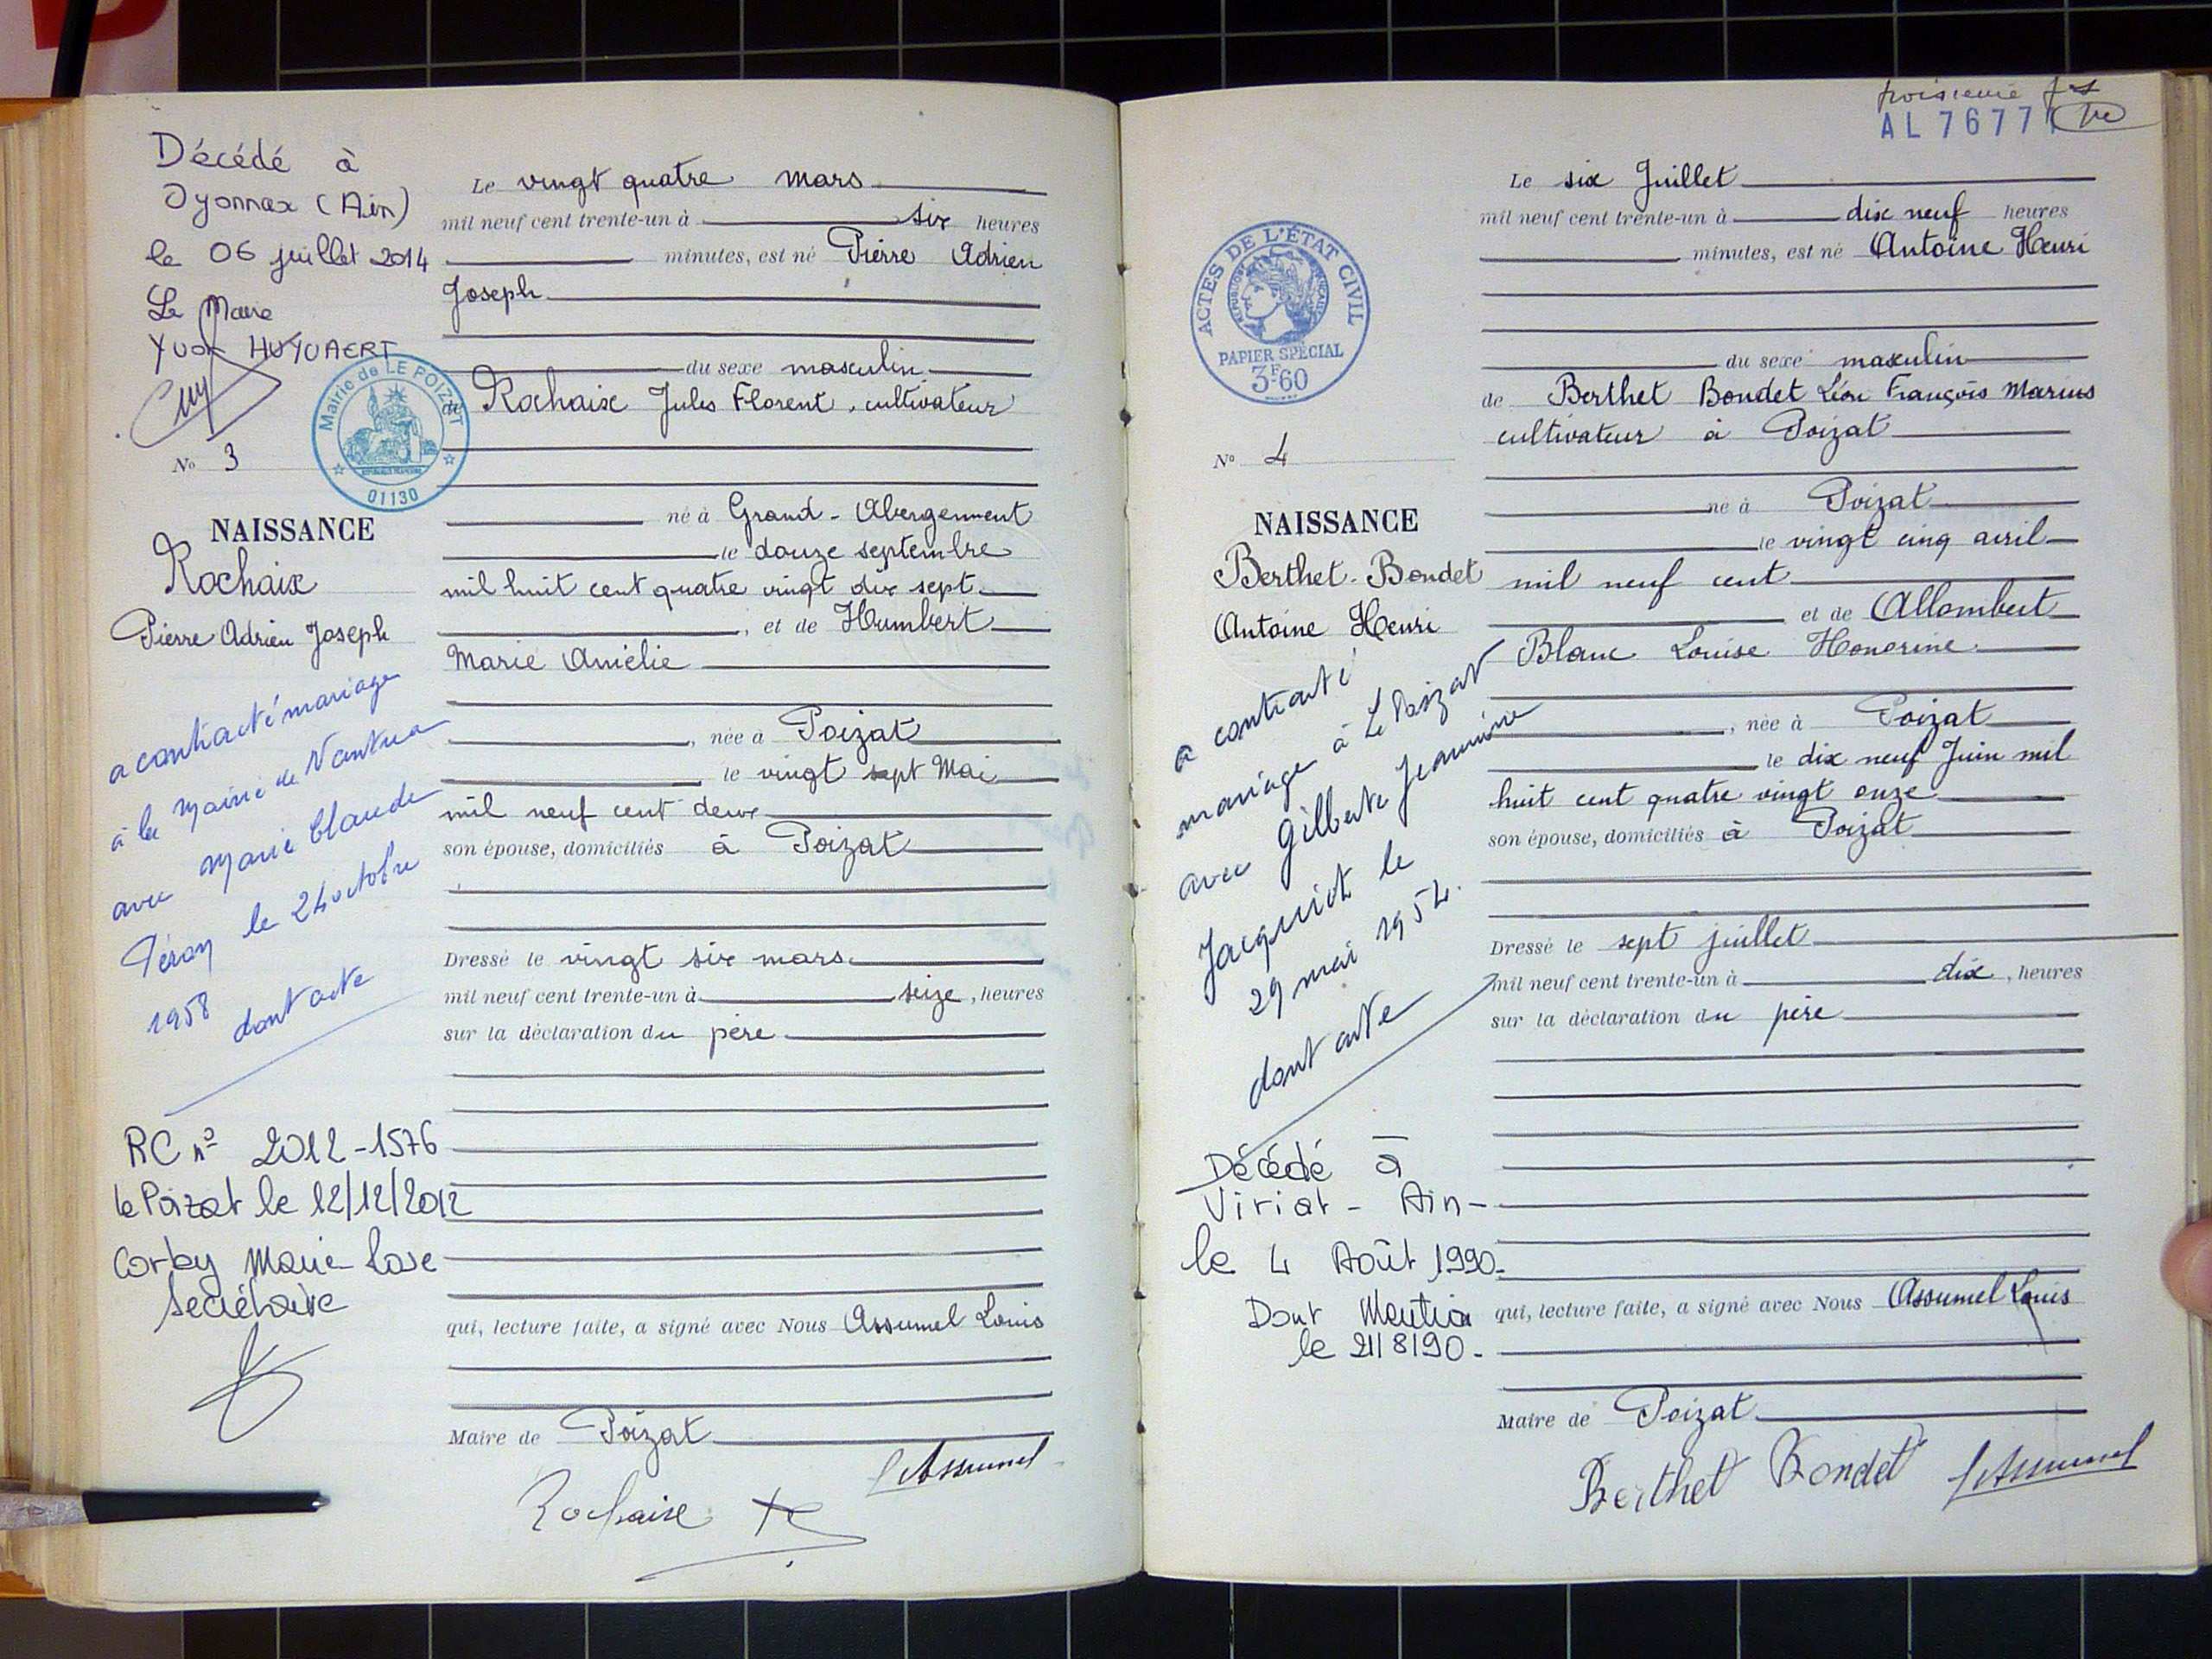 Décédé à
Oyonnax (Ain)
le 06 juillet 2014
Le Maire
HUYVAERT
Mairie de LE POIZAT
RÉPUBLIQUE FRANÇAISE
01130
No 3
NAISSANCE
Rochaix
Pierre Adrien Joseph
a contracté mariage
à la mairie de Nantua
avec Marie Claude
le 24 octobre
1958 dont acte
RC no 2012-1576
le Poizat le 12/12/2012
Corby Marie Rose
secrétaire
Le vingt quatre mars
mil neuf cent trente-un à six heures
minutes, est né Pierre Adrien
Joseph
du sexe masculin
de Rochaix Jules Florent, cultivateur
né à Grand-Abergement
le douze septembre
mil huit cent quatre vingt dix sept
, et de Humbert
Marie Amélie
, née à Poizat
le vingt sept Mai
mil neuf cent deux
son épouse, domiciliés à Poizat
Dressé le vingt six mars
mil neuf cent trente-un à seize, heures
sur la déclaration du père
qui, lecture faite, a signé avec Nous Assumel Louis
Maire de Poizat
Rochaix
L Assumel
troisième
AL 7677
ACTES DE L'ÉTAT CIVIL
RÉPUBLIQUE FRANÇAISE
PAPIER SPÉCIAL
3F60
No 4
NAISSANCE
Berthet-Bondet
Antoine Henri
a contracté
mariage à Le Poizat
avec Gilberte Jeannine
Jacquiot le
29 mai 1954.
dont acte
Décédé à
Viriat - Ain -
le 4 Août 1990.
Dont Mention
le 21/8/90.
Le six Juillet
mil neuf cent trente-un à dix neuf heures
minutes, est né Antoine Henri
du sexe masculin
de Berthet Bondet Léon François Marius
cultivateur à Poizat
né à Poizat
le vingt cinq avril
mil neuf cent
et de Allombert
Blanc Louise Honorine
, née à Poizat
le dix neuf Juin mil
huit cent quatre vingt onze
son épouse, domiciliés à Poizat
Dressé le sept juillet
mil neuf cent trente-un à dix, heures
sur la déclaration du père
qui, lecture faite, a signé avec Nous Assumel Louis
Maire de Poizat
Berthet Bondet
L Assumel